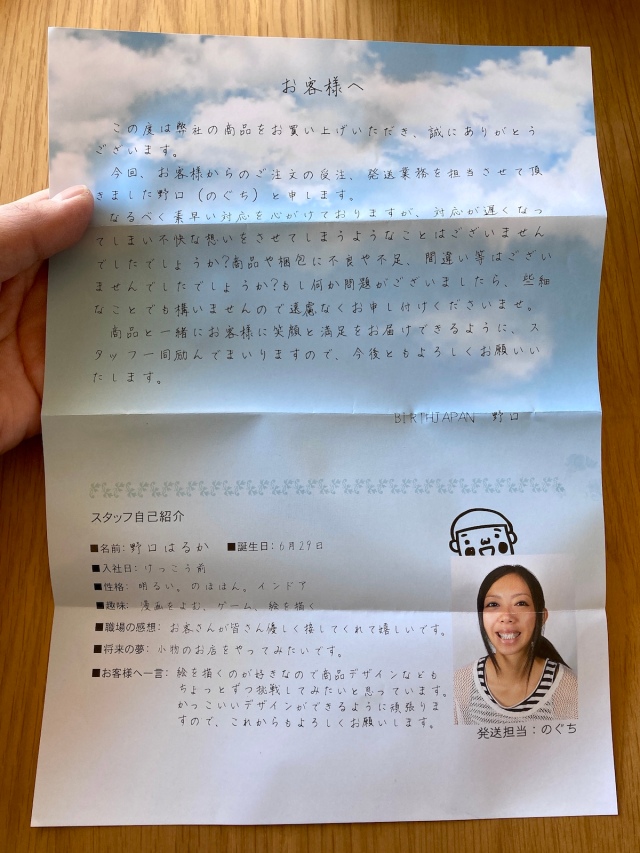 お客様へ
この度は弊社の商品をお買い上げいただき、誠にありがとう
ございます。
今回、お客様からのご注文の受注、発送業務を担当させて頂
きました野口(のぐち)と申します。
なるべく素早い対応を心がけておりますが、対応が遅くなっ
てしまい不快な想いをさせてしまうようなことはございません
でしたでしょうか?商品や梱包に不良や不足、間違い等はござい
ませんでしたでしょうか?もし何か問題がございましたら、些細
なことでも構いませんので遠慮なくお申し付けくださいませ。
商品と一緒にお客様に笑顔と満足をお届けできるように、ス
タッフ一同励んでまいりますので、今後ともよろしくお願いい
たします。
BIRTHJAPAN 野口
スタッフ自己紹介
■名前:野口はるか ■誕生日:6月29日
■入社日:けっこう前
■性格:明るい。のほほん。インドア
■趣味:漫画をよむ、ゲーム、絵を描く
■職場の感想:お客さんが皆さん優しく接してくれて嬉しいです。
■将来の夢:小物のお店をやってみたいです。
■お客様へ一言:絵を描くのが好きなので商品デザインなども
ちょっとずつ挑戦してみたいと思っています。
かっこいいデザインができるように頑張りま
すので、これからもよろしくお願いします。
発送担当:のぐち